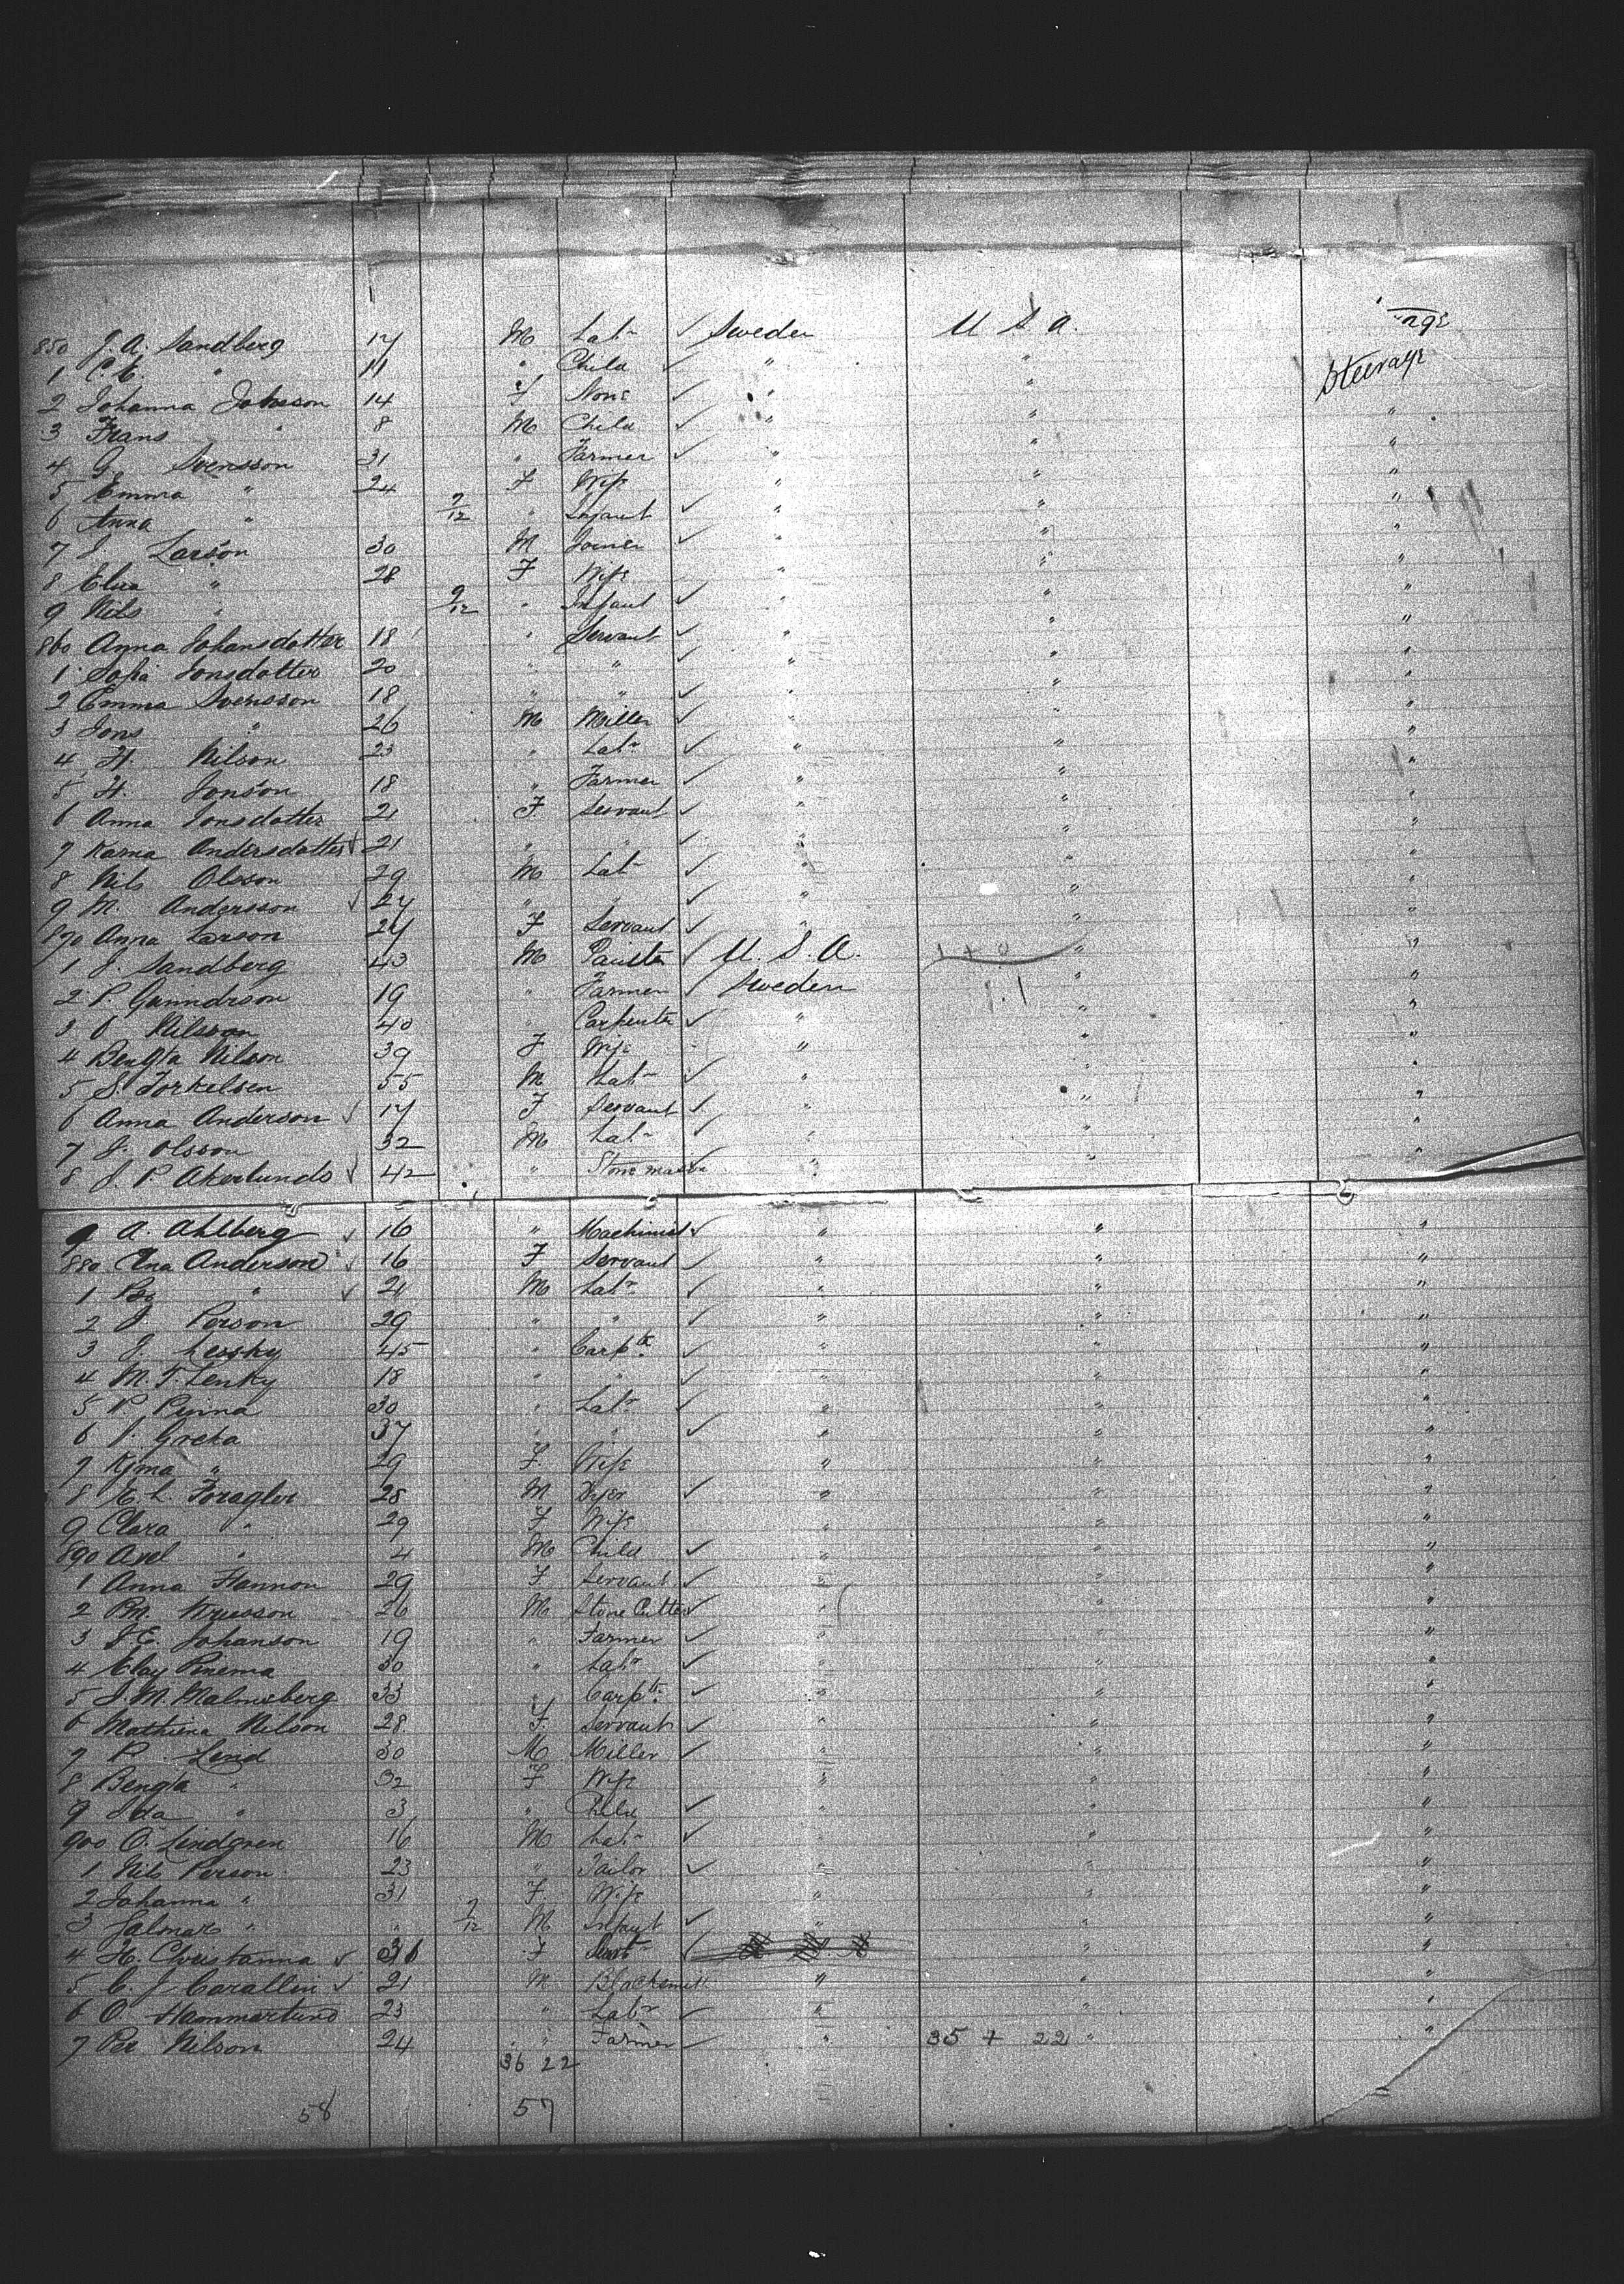 850 J. A. Sandberg 17 M Labr ✓ Sweden U S A.
1 C. E. " 11 " Child ✓ " " Steerage
2 Johanna Johnson 14 F None ✓ " "
3 Frans " 8 M Child ✓ " " "
4 G. Svensson 31 " Farmer ✓ " " "
5 Emma " 24 F Wife " " "
6 Anna " " Infant ✓ " " "
7 J. Larson 30 M Joiner ✓ " " "
8 Elna " 28 F Wife " " "
9 Nils " 9/12 " Infant ✓ " " "
860 Anna Johansdatter 18 " Servant ✓ " " "
1 Sofia Jonsdatter 20 " " ✓ " " "
2 Emma Svensson 18 " " ✓ " " "
3 Jons " 26 M Miller ✓ " " "
4 H. Nilson 23 " Labr ✓ " " "
5 H. Jonson 18 " Farmer ✓ " " "
6 Anna Jonsdatter 21 F Servant ✓ " " "
7 Karna Andersdatter ✓ 21 " " ✓ " " "
8 Nils Olsson 29 M Labr ✓ " " "
9 M. Andersson ✓ 27 " " ✓ " " "
870 Anna Larson 24 F Servant ✓ " " "
1 J. Sandberg 43 M ✓ U. S. A. 1 + 0 " "
2 P. 19 " Farmer ✓ Sweden " "
3 O Nilsson 40 " Carpenter ✓ " " "
4 Bengta Nilson 39 F Wife " " "
5 S. Torkelsen 55 M Labr ✓ " " "
6 Anna Anderson ✓ 17 F Servant ✓ " " "
7 J. Olsson 32 M Labr ✓ " " "
8 J. P. Akerlunds ✓ 42 " Stone mason " " "
9 A. Ahlberg ✓ 16 " Machinist ✓ " " "
880 Ana Anderson ✓ 16 F Servant ✓ " " "
1 " ✓ 21 M Labr ✓ " " "
2 J Person 29 " " ✓ " " "
3 J. 45 " Carptr ✓ " " "
4 M. T. Lenky 18 " " ✓ " " "
5 P. 30 " Labr ✓ " " "
6 Greta 37 " " ✓ " " "
7 " 29 F Wife " " "
8 E. L. Foragler 28 M Dyer ✓ " " "
9 Clara " 29 F Wife " " "
890 Axel " 4 M Child ✓ " " "
1 Anna Hannon 29 F Servant ✓ " " "
2 26 M Stone Cutter ✓ " " "
3 J. E. Johanson 19 " Farmer ✓ " " "
4 30 " Labr ✓ " " "
5 J. M. Malmsberg 33 " Carptr ✓ " " "
6 Nelson 28 F. Servant ✓ " " "
7 P. Lind 30 M Miller ✓ " " "
8 Bengta " 32 F Wife " " "
9 Ida " 3 " Child ✓ " " "
900 O. Lindgren 16 M Labr ✓ " " "
1 Nils Person 23 " Tailor ✓ " " "
2 Johanna " 31 F. Wife " " "
3 Jalmar " " M Infant ✓ " " "
4 H. Christanna ✓ F ✓ " "
5 C. J Carallin ✓ 21 M Blacksmith " " "
6 O Hammarlund 23 " Labr ✓ " " "
7 Per Nilson 24 " Farmer ✓ " 35 + 22 " "
36 22
58 57